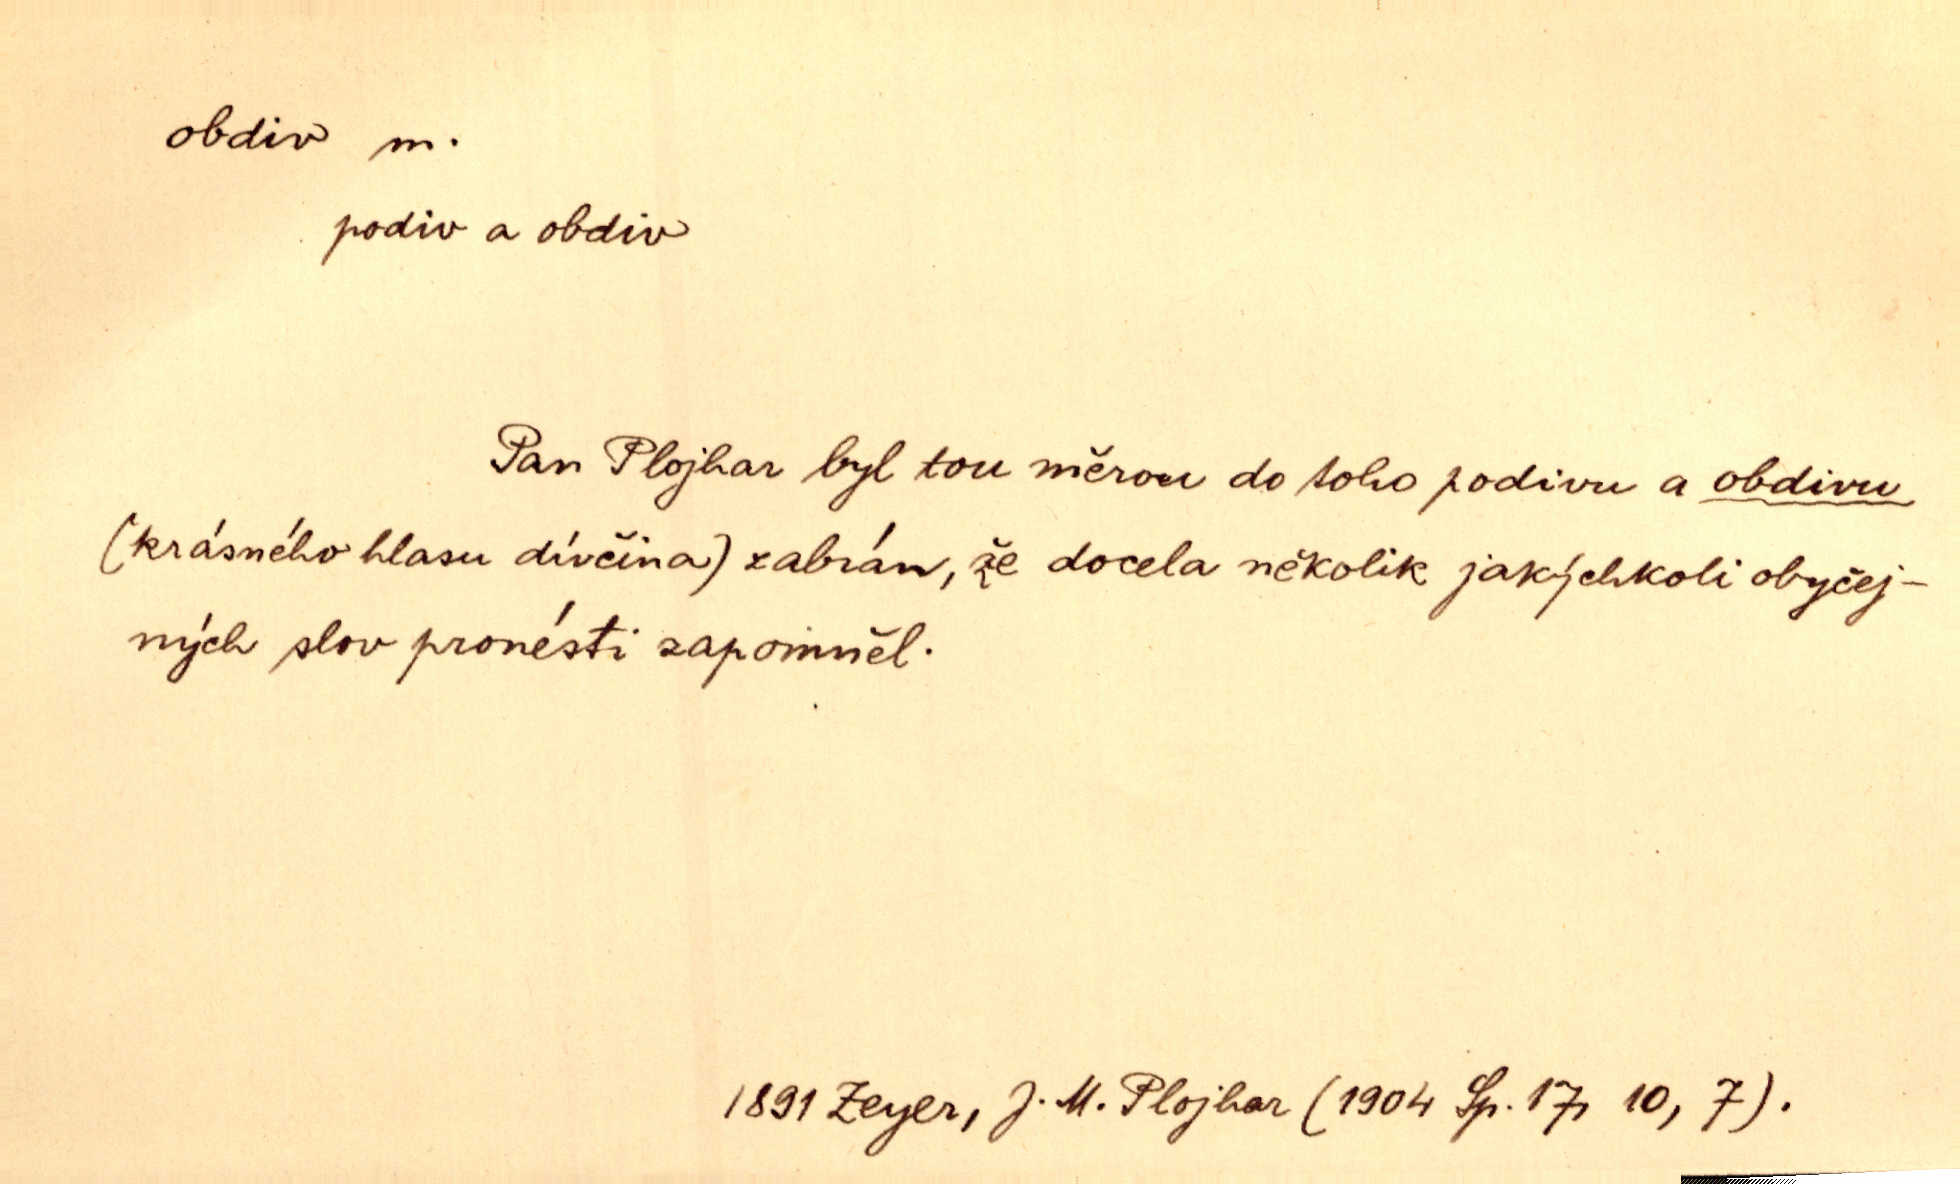 obdiv m.
podiv a obdiv
Pan Plojhar byl tou měrou do toho podivu a obdivu
(krásného hlasu dívčina) zabrán, že docela několik jakýchkoli obyčej-
ných slov pronésti zapomněl.
1891 Zeyer, J. M. Plojhar (1904 Sp. 17, 10, 7).